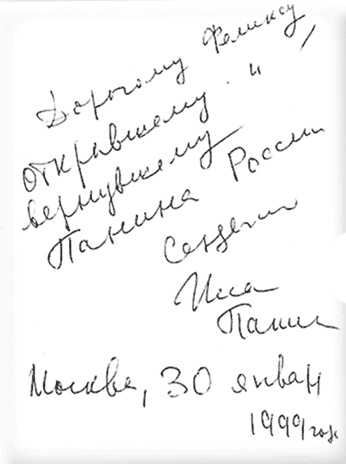 Дорогому Феликсу,
открывшему и
вернувшему
Панина России
Сердечно
Иса
Панин
Москва, 30 января
1999 года